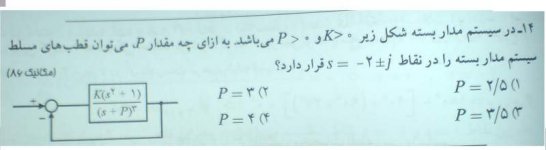 ۱۴ـ در سیستم مدار بسته شکل زیر K>۰ و P>۰ می‌باشد. به ازای چه مقدار P، می‌توان قطب‌های مسلط
سیستم مدار بسته را در نقاط s = −۲ ± j قرار دارد؟
(مکانیک ۸۶)
P = ۲/۵ (۱
P = ۳ (۲
P = ۳/۵ (۳
P = ۴ (۴
+
−
K(s۲ + ۱)
(s + P)۳